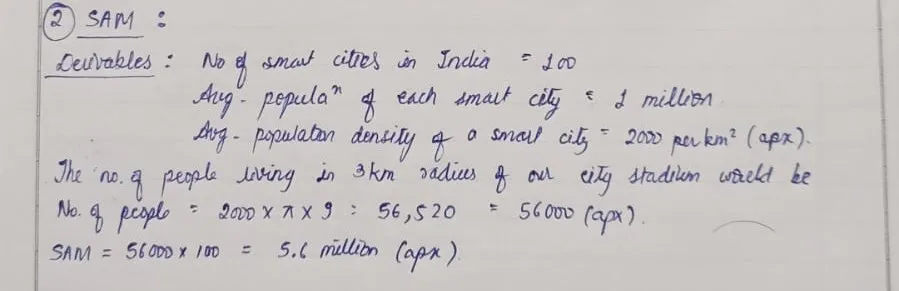 ② SAM :
Derivables : No of smart cities in India = 100
Avg. populaⁿ of each smart city = 1 million
Avg. population density of a smart city = 2000 per km² (apx).
The no. of people living in 3km radius of our city stadium would be
No. of people = 2000 x π x 9 = 56,520 = 56000 (apx).
SAM = 56000 x 100 = 5.6 million (apx)